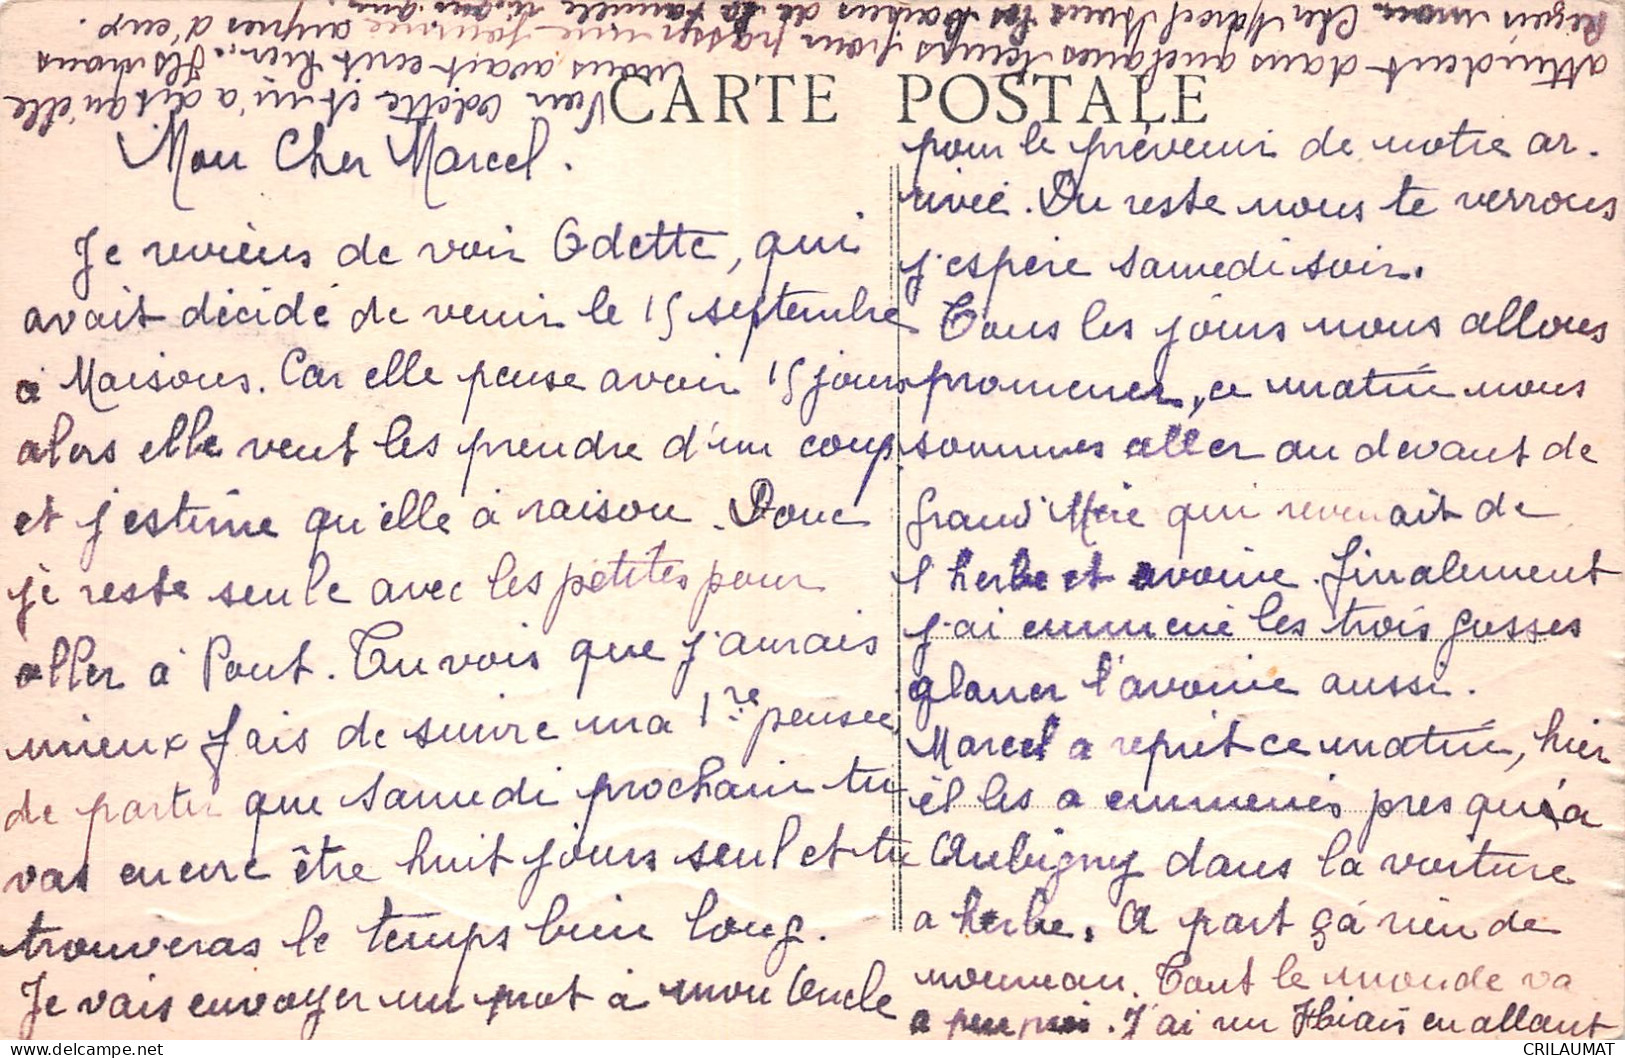 CARTE POSTALE
Mon Cher Marcel.
Je reviens de voir Odette, qui
avait décidé de venir le 15 septembre
à Maisons. Car elle pense avoir 15 jours
alors elle veut les prendre d'un coup
et j'estime qu'elle à raison. Donc
je reste seule avec les petites pour
aller à Pont. Tu vois que j'aurais
mieux fais de suivre ma 1re pensée,
de partir que samedi prochain tu
vas encore être huit jours seul et tu
trouveras le temps bien long.
Je vais envoyer un mot à mon Oncle
pour le prévenir de notre ar-
rivée. Du reste nous te verrons
j'espère samedi soir.
Tous les jours nous allons
promener, ce matin nous
sommes aller au devant de
Grand'Mère qui revenait de
l'herbe et avoine. Finalement
j'ai emmené les trois gosses
glaner l'avoine aussi.
Marcel a repris ce matin, hier
il les a emmenés presqu'à
Aubigny dans la voiture
a herbe. A part çà rien de
nouveau. Tout le monde va
a peu près. J'ai vu en allant
voir Odette et m'a dit qu'elle
vous avait écrit hier. Ils vous
attendent dans quelques temps pour passer une journée auprès d'eux.
Reçois mon Cher Marcel tous les baisers de la famille
CRILAUMAT